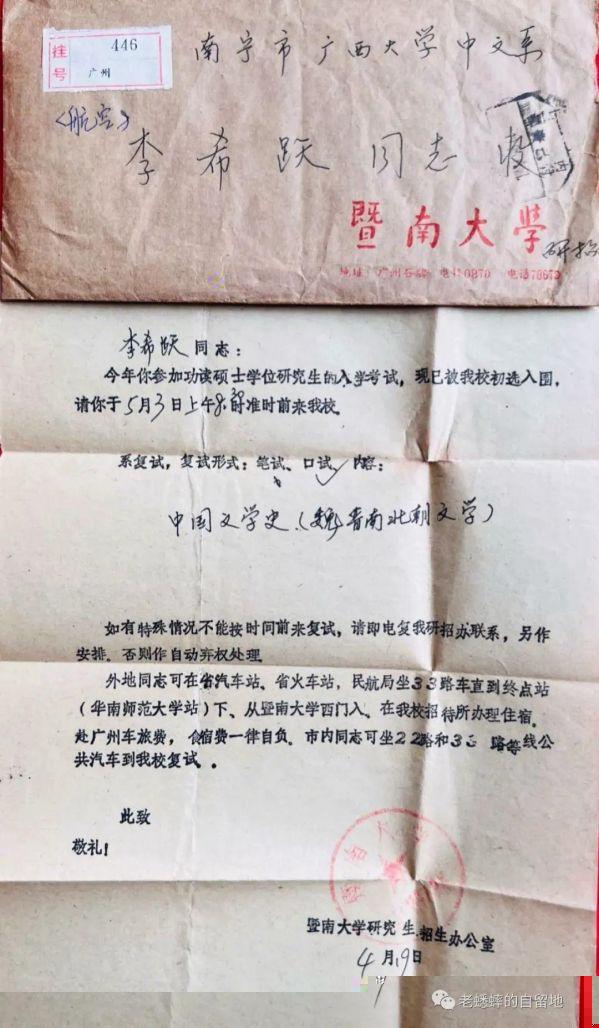 挂号
446
广州
南宁市广西大学中文系
〈航空〉
李希跃同志收
暨南大学
研招
地址 广州石牌 电挂0870 电话78673
李希跃同志:
今年你参加功读硕士学位研究生的入学考试,现已被我校初选入围,
请你于5月3日上午8时前准时前来我校
系复试,复试形式:笔试、口试✓内容:
中国文学史、(魏晋南北朝文学)
如有特殊情况不能按时间前来复试,请即电复我研招办联系,另作
安排。否则作自动弃权处理
外地同志可在省汽车站、省火车站,民航局坐33路车直到终点站
(华南师范大学站)下、从暨南大学西门入。在我校招待所办理住宿。
赴广州车旅费,食宿费一律自负。市内同志可坐22路和33路等线公
共汽车到我校复试。
此致
敬礼!
暨南大学研究生招生办公室
4月19日
老蟋蟀的自留地